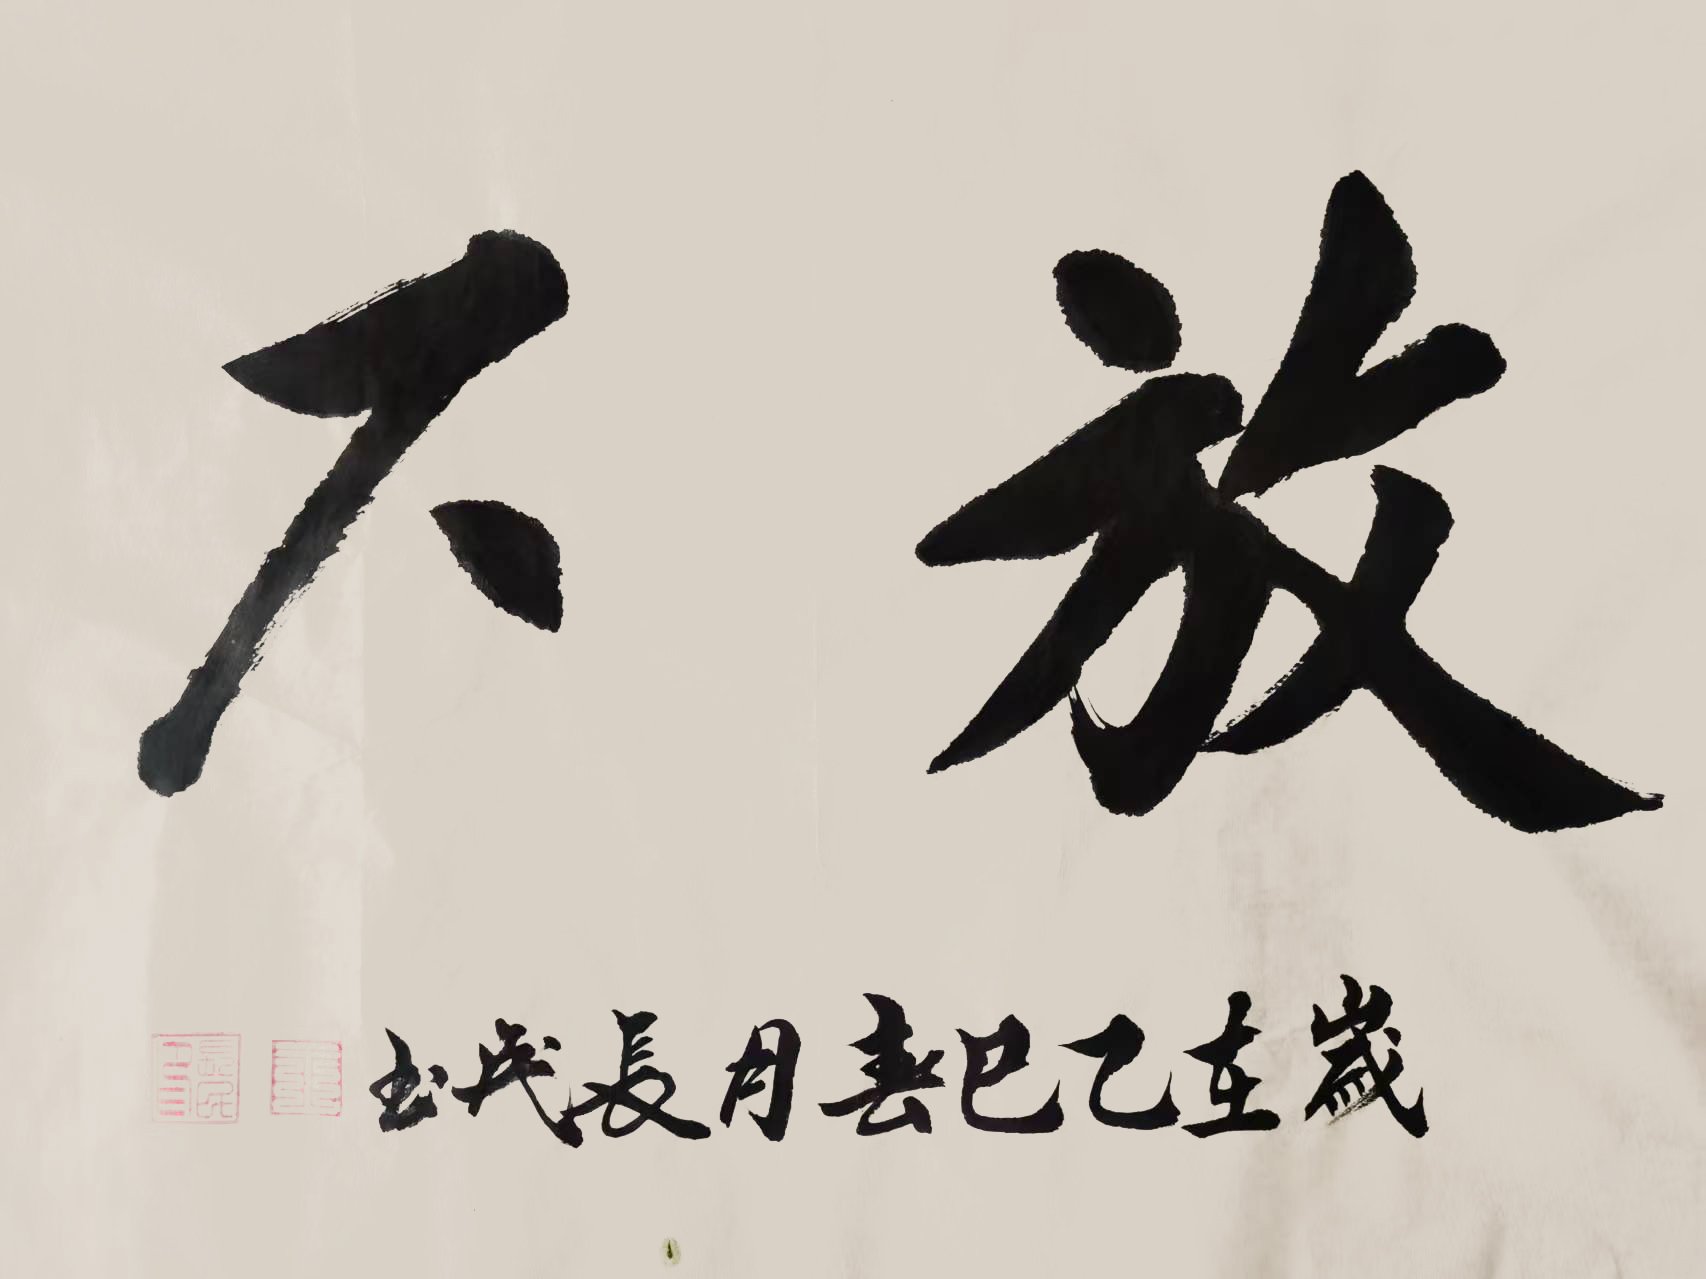 放下
歲在乙巳春月長民书